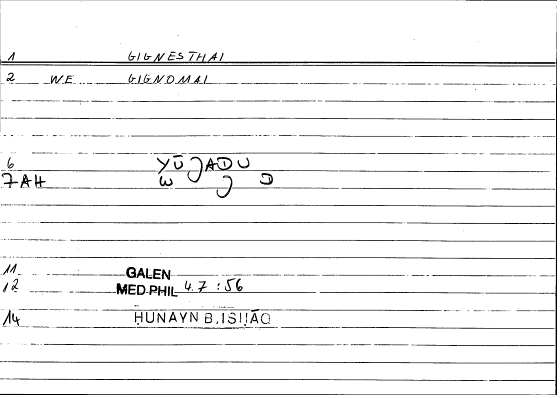 1 GIGNESTHAI
2 WE GIGNOMAI
6 YŪǦADU
7AH W Ǧ D
11 GALEN
12 MED.PHIL 4.7 : 56
14 ḤUNAYN B. ISḤĀQ